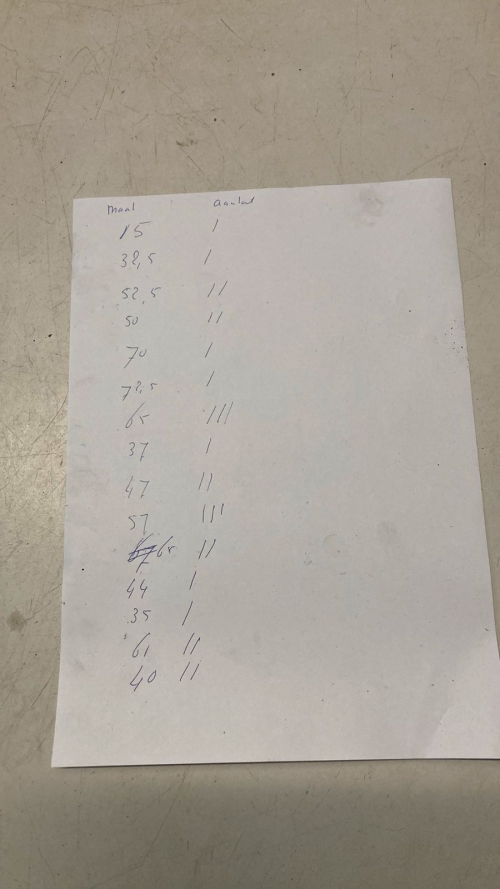 Maat aantal
15 /
32,5 /
52,5 //
50 //
70 /
72,5 /
65 ///
37 /
47 //
57 ///
65 //
44 /
35 /
61 //
40 //